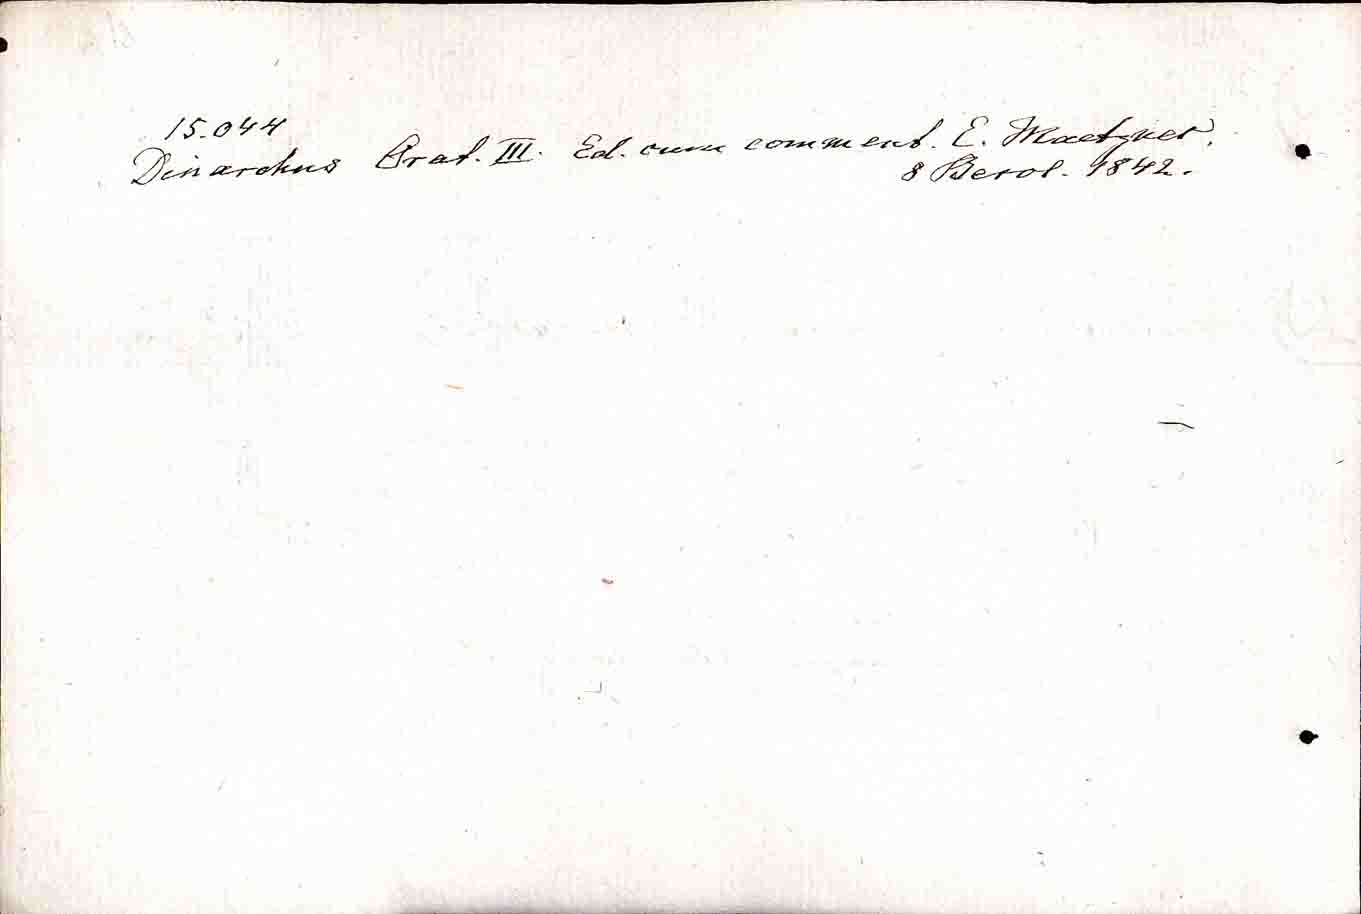 15.044
Dinarchus Orat. III. Ed. cum comment. E. Maetzner.
8 Berol. 1842.